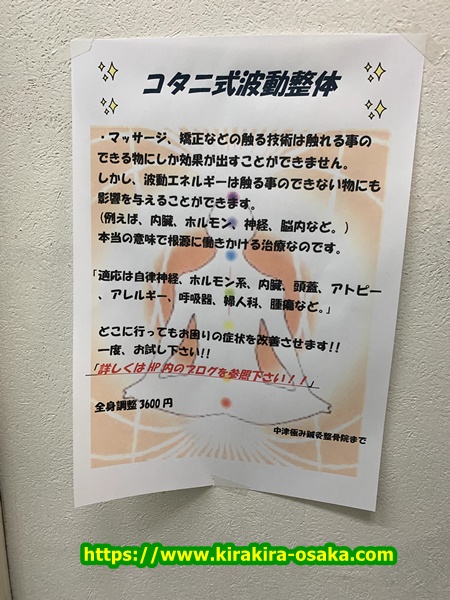 コタニ式波動整体
・マッサージ、矯正などの触る技術は触れる事の
できる物にしか効果が出すことができません。
しかし、波動エネルギーは触る事のできない物にも
影響を与えることができます。
(例えば、内臓、ホルモン、神経、脳内など。)
本当の意味で根源に働きかける治療なのです。
「適応は自律神経、ホルモン系、内臓、頭蓋、アトピー
、アレルギー、呼吸器、婦人科、腫瘍など。」
どこに行ってもお困りの症状を改善させます!!
一度、お試し下さい!!
「詳しくはHP内のブログを参照下さい!!」
全身調整3600円
中津極み鍼灸整骨院まで
https://www.kirakira-osaka.com